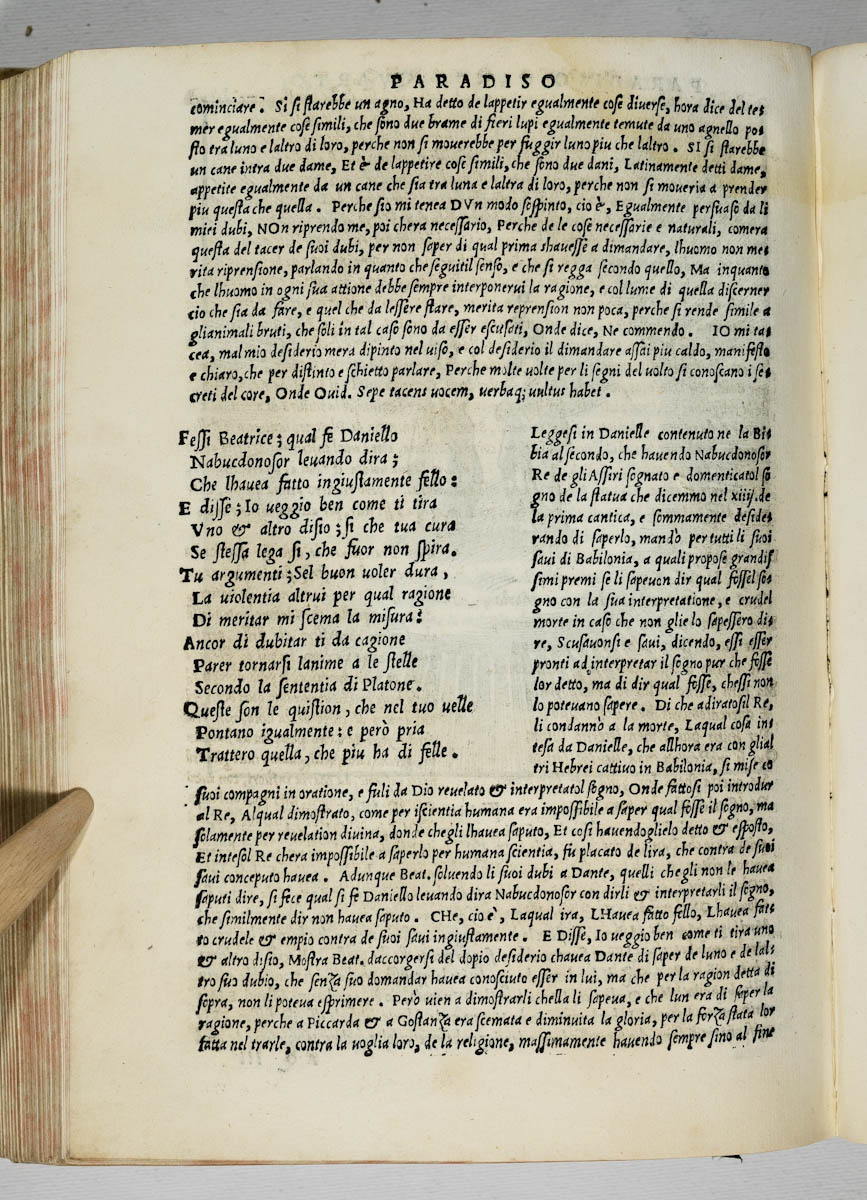 PARADISO
cominciare. Si si starebbe un agno, Ha detto de lappetir egualmente cose diverse, hora dice del te⸗
mer egualmente cose simili, che sono due brame di fieri lupi egualmente temute da uno agnello po⸗
sto tra luno e laltro di loro, perche non si mouerebbe per fuggir luno piu che laltro. SI si starebbe
un cane intra due dame, Et è de lappetire cose simili, che sono due dani, Latinamente detti dame,
appetite egualmente da un cane che sia tra luna e laltra di loro, perche non si moueria a prender
piu questa che quella. Perche sio mi tenea DVn modo sospinto, cio è, Egualmente persuaso da li
miei dubi, NOn riprendo me, poi chera necessario, Perche de le cose necessarie e naturali, comera
questa del tacer de suoi dubi, per non saper di qual prima shauesse a dimandare, lhuomo non me⸗
rita riprensione, parlando in quanto che seguitil senso, e che si regga secondo quello, Ma inquanto
che lhuomo in ogni sua attione debbe sempre interponerui la ragione, e col lume di quella discerner
cio che sia da fare, e quel che da lessere stare, merita reprension non poca, perche si rende simile a
glianimali bruti, che soli in tal caso sono da esser escusati, Onde dice, Ne commendo. IO mi ta⸗
cea, mal mio desiderio mera dipinto nel uiso, e col desiderio il dimandare assai piu caldo, manifesto
e chiaro, che per distinto e schietto parlare, Perche molte uolte per li segni del uolto si conoscano i se⸗
creti del core, Onde Ouid. Sepe tacens uocem, uerbaq; uultus habet.
Fessi Beatrice; qual fe Daniello
Nabucdonosor leuando dira;
Che lhauea fatto ingiustamente fello:
E disse; Io ueggio ben come ti tira
Vno & altro disio; si che tua cura
Se stessa lega si, che fuor non spira.
Tu argumenti; Sel buon uoler dura,
La uiolentia altrui per qual ragione
Di meritar mi scema la misura:
Ancor di dubitar ti da cagione
Parer tornarsi lanime a le stelle
Secondo la sententia di Platone.
Queste son le quistion, che nel tuo uelle
Pontano igualmente: e però pria
Trattero quella, che piu ha di felle.
Leggesi in Danielle contenuto ne la Bi⸗
bia al secondo, che hauendo Nabucdonosor
Re de gli Assiri sognato e domenticatol so
gno de la statua che dicemmo nel xiiij. de
la prima cantica, e sommamente deside⸗
rando di saperlo, mandò per tutti li suoi
saui di Babilonia, a quali propose grandis
simi premi se li sapeuon dir qual fossel so⸗
gno con la sua interpretatione, e crudel
morte in caso che non glie lo sapessero di⸗
re, Scusauonsi e saui, dicendo, essi esser
pronti ad interpretar il segno pur che fosse
lor detto, ma di dir qual fosse, chessi non
lo poteuano sapere. Di che adiratosil Re,
li condannò a la morte, Laqual cosa in⸗
tesa da Danielle, che allhora era con glial
tri Hebrei cattiuo in Babilonia, si mise co
suoi compagni in oratione, e fuli da Dio reuelato & interpretatol segno, Onde fattosi poi introdur
al Re, Alqual dimostrato, come per iscientia humana era impossibile a saper qual fosse il segno, ma
solamente per reuelation diuina, donde chegli lhauea saputo, Et cosi hauendoglielo detto & esposto,
Et intesol Re chera impossibile a saperlo per humana scientia, fu placato de lira, che contra de suoi
saui conceputo hauea. Adunque Beat. soluendo li suoi dubi a Dante, quelli che gli non le hauea
saputi dire, si fece qual si fe Daniello leuando dira Nabucdonosor con dirli & interpretarli il segno,
che similmente dir non hauea saputo. CHe, cio è, Laqual ira, LHauea fatto fello, Lhauea fat⸗
to crudele & empio contra de suoi saui ingiustamente. E Disse, Io ueggio ben come ti tira uno
& altro disio, Mostra Beat. daccorgersi del dopio desiderio chauea Dante di saper de luno e de lal⸗
tro suo dubio, che senza suo domandar hauea conosciuto esser in lui, ma che per la ragion detta di
sopra, non li poteua esprimere. Però uien a dimostrarli chella li sapeua, e che lun era di saper la
ragione, perche a Piccarda & a Gostanza era scemata e diminuita la gloria, per la forza stata lor
fatta nel trarle, contra la uoglia loro, de la religione, massimamente hauendo sempre sino al fine